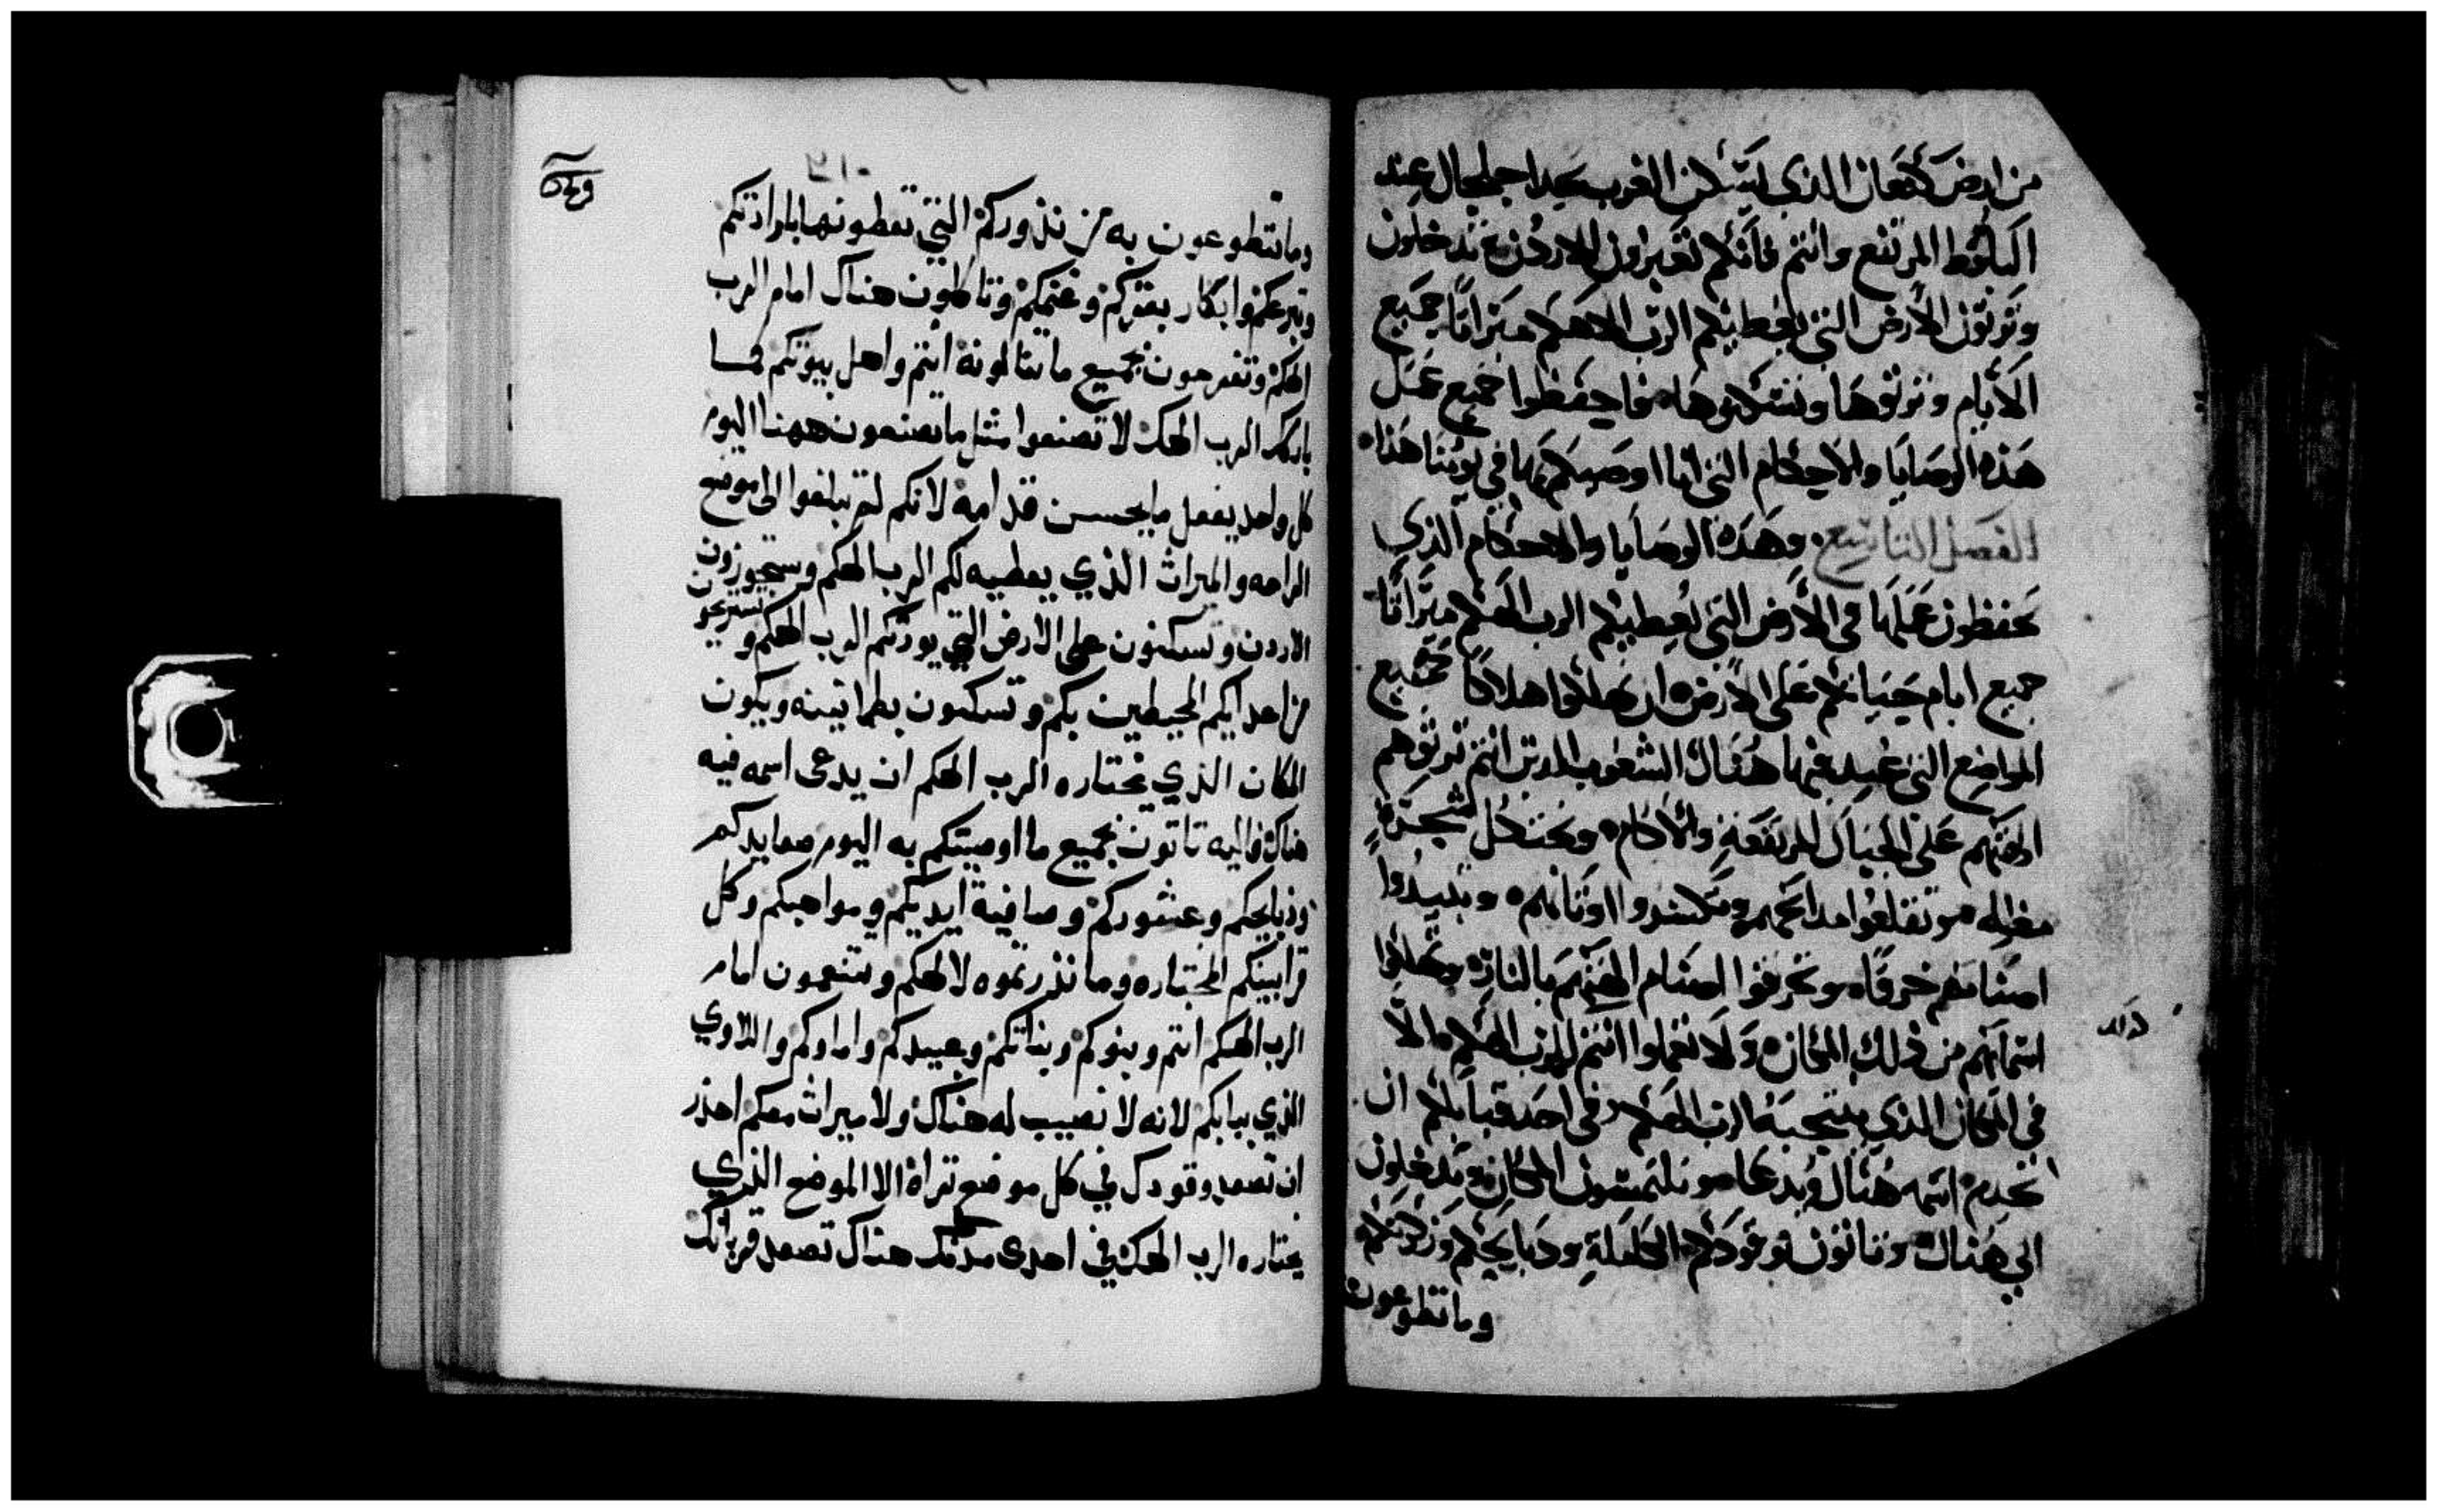 من ارض كنعان الذى يسكن الغرب بحدا جلجال عند
البلوط المرتفع وانتم فانكم تعبرون الاردن وتدخلون
وترثون الأرض التي يعطيكم الرب الاهكم ميراثا جميع
الأيام وترثوها وتسكنوها فاحفظوا جميع عمل
هذه الوصايا والاحكام التي انا اوصيكم بها في يومنا هذا
الفصل التاسع وهذه الوصايا والاحكام الذي
تحفظون عملها في الأرض التي يعطيكم الرب الهكم ميراثا
جميع ايام حياتكم على الارض ان تهلكوا هلاكا جميع
المواضع التي عبد فيها هناك الشعوب الدين انتم ترثوهم
الهتهم على الجبال المرتفعة والاكام وتحت كل شجرة
مظله وتقلعوا مدابحهم وتكسروا اوثانهم وتبيدوا
اصنامهم خرقا وتحرقوا اصنام الهتهم بالنار وتهلكوا
اسماهم من ذلك المكان ولا تعملوا انتم للرب الهكم الا
في المكان الذي ينتخبه الرب الهكم في احد قبايلكم ان
يخدم اسمه هناك ويدعا وتلتمسون المكان وتدخلون
الي هناك وتاتون بوقودكم الكاملة ودبايحكم ونذركم
وما تطوعون
وما تتطوعون به من نذوركم التي تعطونها بارادتكم
وتبرعكم وابكار بقركم وغنمكم وتاكلون هناك امام الرب
الهكم وتفرحون بجميع ما تنالونه انتم واهل بيوتكم كما
بارك الرب الهك لا تصنعوا مثل ما تصنعون ههنا اليوم
كل واحد يفعل ما يحسن قدامه لانكم لم تبلغوا الى موضع
الراحه والميراث الذي يعطيه لكم الرب الهكم وستجوزون
الاردن وتسكنون على الارض التي يورثكم الرب الهكم وتستريحون
من اعدايكم المحيطين بكم وتسكنون بطمانينه ويكون
المكان الذي يختاره الرب الهكم ان يدعى اسمه فيه
هناك فاليه تاتون بجميع ما اوصيتكم به اليوم صعايدكم
وذبايحكم وعشوركم وصافية ايديكم ومواهبكم وكل
قرابينكم المختاره وما نذرتموه لالهكم وتتنعمون امام
الرب الهكم انتم وبنوكم وبناتكم وعبيدكم واماوكم واللاوي
الذي ببابكم لانه لا نصيب له هناك ولا ميراث معكم احذر
ان تصعد وقودك في كل موضع تراه الا الموضع الذي
يختاره الرب الهك في احدى مدنك هناك تصعد قربانك